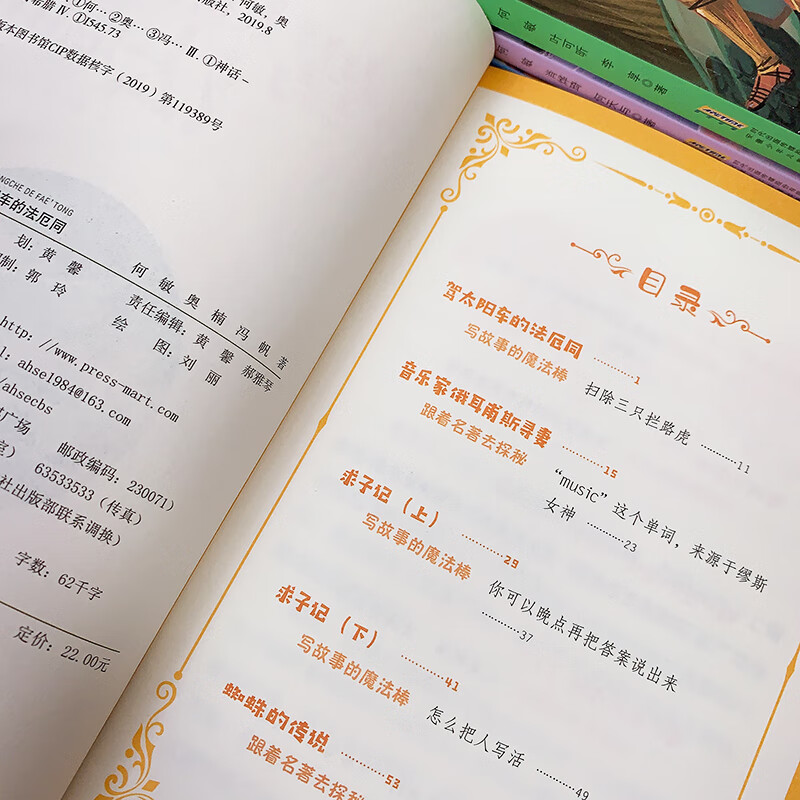 何敏,奥
版社,2019.8
①何…②奥…③冯…Ⅲ.①神话-
希腊 Ⅳ.①I545.73
版本图书馆CIP数据核字(2019)第119389号
NGCHE DE FAE'TONG
车的法厄同
何 敏 奥 楠 冯 帆 著
划:黄 馨
责任编辑:黄 馨 郝雅琴
制:郭 玲
绘 图:刘 丽
http://www.press-mart.com
l:ahse1984@163.com
/ahsecbs
广场 邮政编码:230071)
室) 63533533(传真)
社出版部联系调换)
字数:62千字
定价:22.00元
何 敏 叶可昕 李 享◎著
目录
驾太阳车的法厄同 ………1
写故事的魔法棒 扫除三只拦路虎 ………11
音乐家俄耳甫斯寻妻 ………15
跟着名著去探秘 “music”这个单词,来源于缪斯
女神 ………23
求子记(上) ………29
写故事的魔法棒 你可以晚点再把答案说出来
………37
求子记(下) ………41
写故事的魔法棒 怎么把人写活 ………49
蜘蛛的传说 ………53
跟着名著去探秘